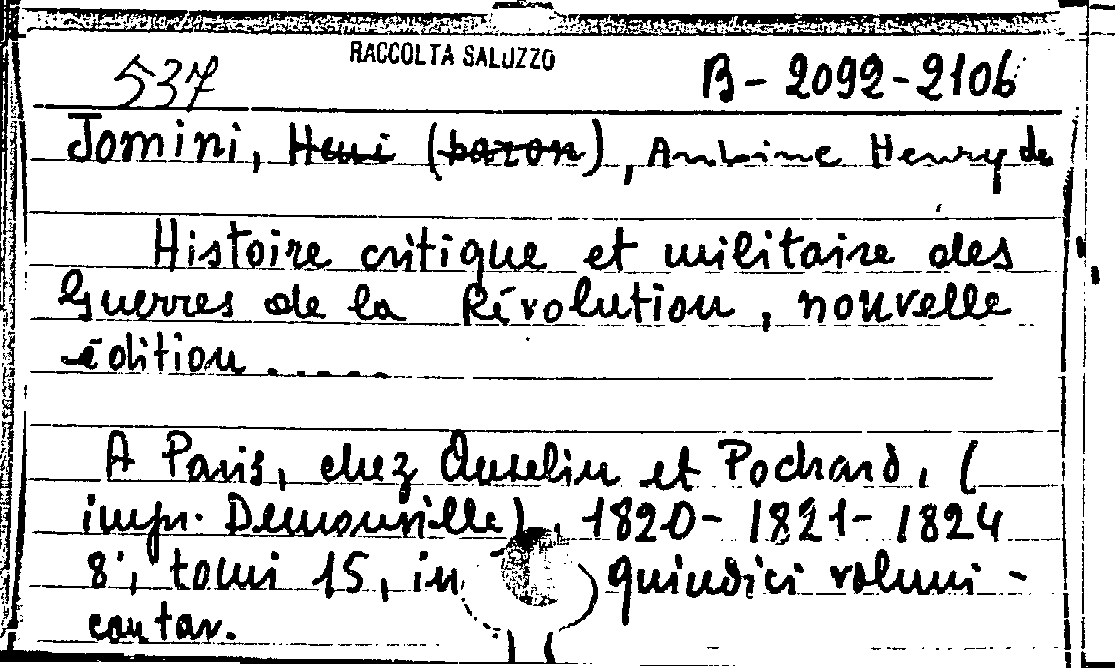 RACCOLTA SALUZZO
537 B - 2092 - 2106
Jomini, Henri (baron), Antoine Henry de
Histoire critique et militaire des
Guerres de la Révolution, nouvelle
édition .....
A Paris, chez Anselin et Pochard, (
impr. Demonville), 1820 - 1821 - 1824
8°, tomi 15, in quindici volumi -
con tav.